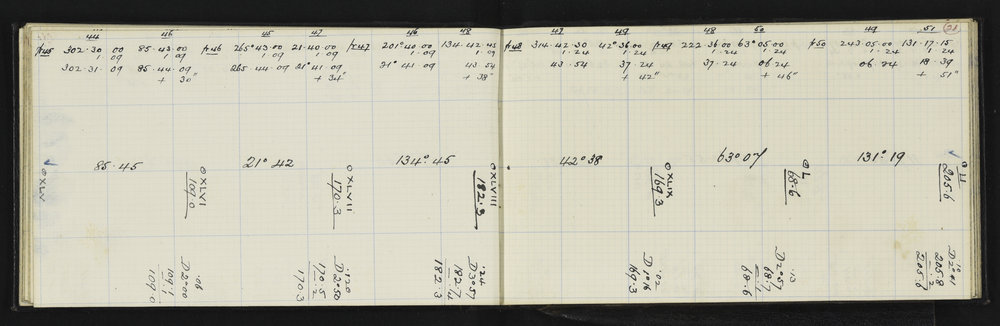 44 46 45 47 46 48
p45 302·30 00 85·43·00 p46 265°43·00 21·40·00 p47 201°40·00 134·42·45
1·09 1·09 1·09 1·09 1·09 1·09
302·31·09 85·44·09 265·44·09 21°41·09 21°41·09 43·54
+ 30" + 34" + 38"
85·45 21° 42 134°·45
⊙ XLV
⊙ XLVI
109.0
⊙ XLVII
170·3
⊙ XLVIII
182·3
·08
D2°00
109·1
·1
109·0
·20
D2°50
170·5
·2
170·3
·24
D3°57
182·7
·4
182·3
47 49 48 50 49 51 21
p48 314·42·30 42°36·00 p49 222·36·00 63°05·00 p50 243·05·00 131·17·15
1·24 1·24 1·24 1·24 1·24 1·24
43·54 37·24 37·24 06·24 06·24 18·39
+ 42" + 46" + 51"
42°38 63°07 131°·19
⊙ XLIX
169·3
⊙ L
68·6
⊙ LI
205·6
·02
D1°16
169·3
·13
D2°57
68·7
·1
68·6
·10
D2°41
205·8
·2
205·6